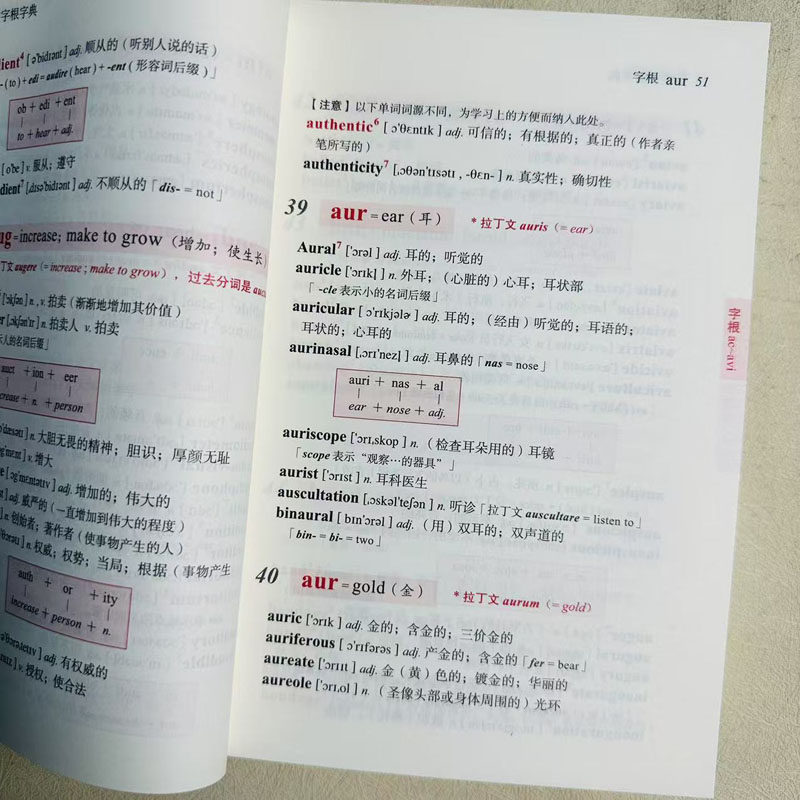 字根字典
dient⁴ [ə'bidɪənt] adj. 顺从的（听别人说的话）
(to) + edi = audire (hear) + -ent (形容词后缀)」
ob + edi + ent
to + hear + adj.
[o'be] v. 服从；遵守
dient [ˌdɪsə'bidɪənt] adj. 不顺从的「dis- = not」
ug = increase; make to grow（增加；使生长）
丁文 augere (= increase ; make to grow)，过去分词是
n. , v. 拍卖（渐渐地增加其价值）
n. 拍卖人 v. 拍卖
示人的名词后缀」
auct + ion + eer
increase + n. + person
n. 大胆无畏的精神；胆识；厚颜无耻
v. 增大
adj. 增加的；伟大的
adj. 威严的（一直增加到伟大的程度）
n. 创始者；著作者（使事物产生的人）
n. 权威；权势；当局；根据（事物产生
auth + or + ity
increase + person + n.
adj. 有权威的
v. 授权；使合法
字根 aur 51
【注意】以下单词词源不同，为学习上的方便而纳入此处。
authentic⁶ [ɔ'θɛntɪk] adj. 可信的；有根据的；真正的（作者亲
笔所写的）
authenticity⁷ [ˌɔθən'tɪsətɪ , -θɛn-] n. 真实性；确切性
39 aur = ear（耳） * 拉丁文 auris (= ear)
Aural⁷ ['ɔrəl] adj. 耳的；听觉的
auricle ['ɔrɪkl] n. 外耳；（心脏的）心耳；耳状部
「-cle 表示小的名词后缀」
auricular [ɔ'rɪkjələ] adj. 耳的；（经由）听觉的；耳语的；
耳状的；心耳的
aurinasal [ˌɔrɪ'nezl] adj. 耳鼻的「nas = nose」
auri + nas + al
ear + nose + adj.
auriscope ['ɔrɪˌskop] n.（检查耳朵用的）耳镜
「scope 表示“观察…的器具”」
aurist ['ɔrɪst] n. 耳科医生
auscultation [ˌɔskəl'teʃən] n. 听诊「拉丁文 auscultare = listen to」
binaural [bɪn'ɔrəl] adj.（用）双耳的；双声道的
「bin- = bi- = two」
40 aur = gold（金） * 拉丁文 aurum (= gold)
auric ['ɔrɪk] adj. 金的；含金的；三价金的
auriferous [ɔ'rɪfərəs] adj. 产金的；含金的「fer = bear」
aureate ['ɔrɪɪt] adj. 金（黄）色的；镀金的；华丽的
aureole ['ɔrɪˌol] n.（圣像头部或身体周围的）光环
字根 ac~avi